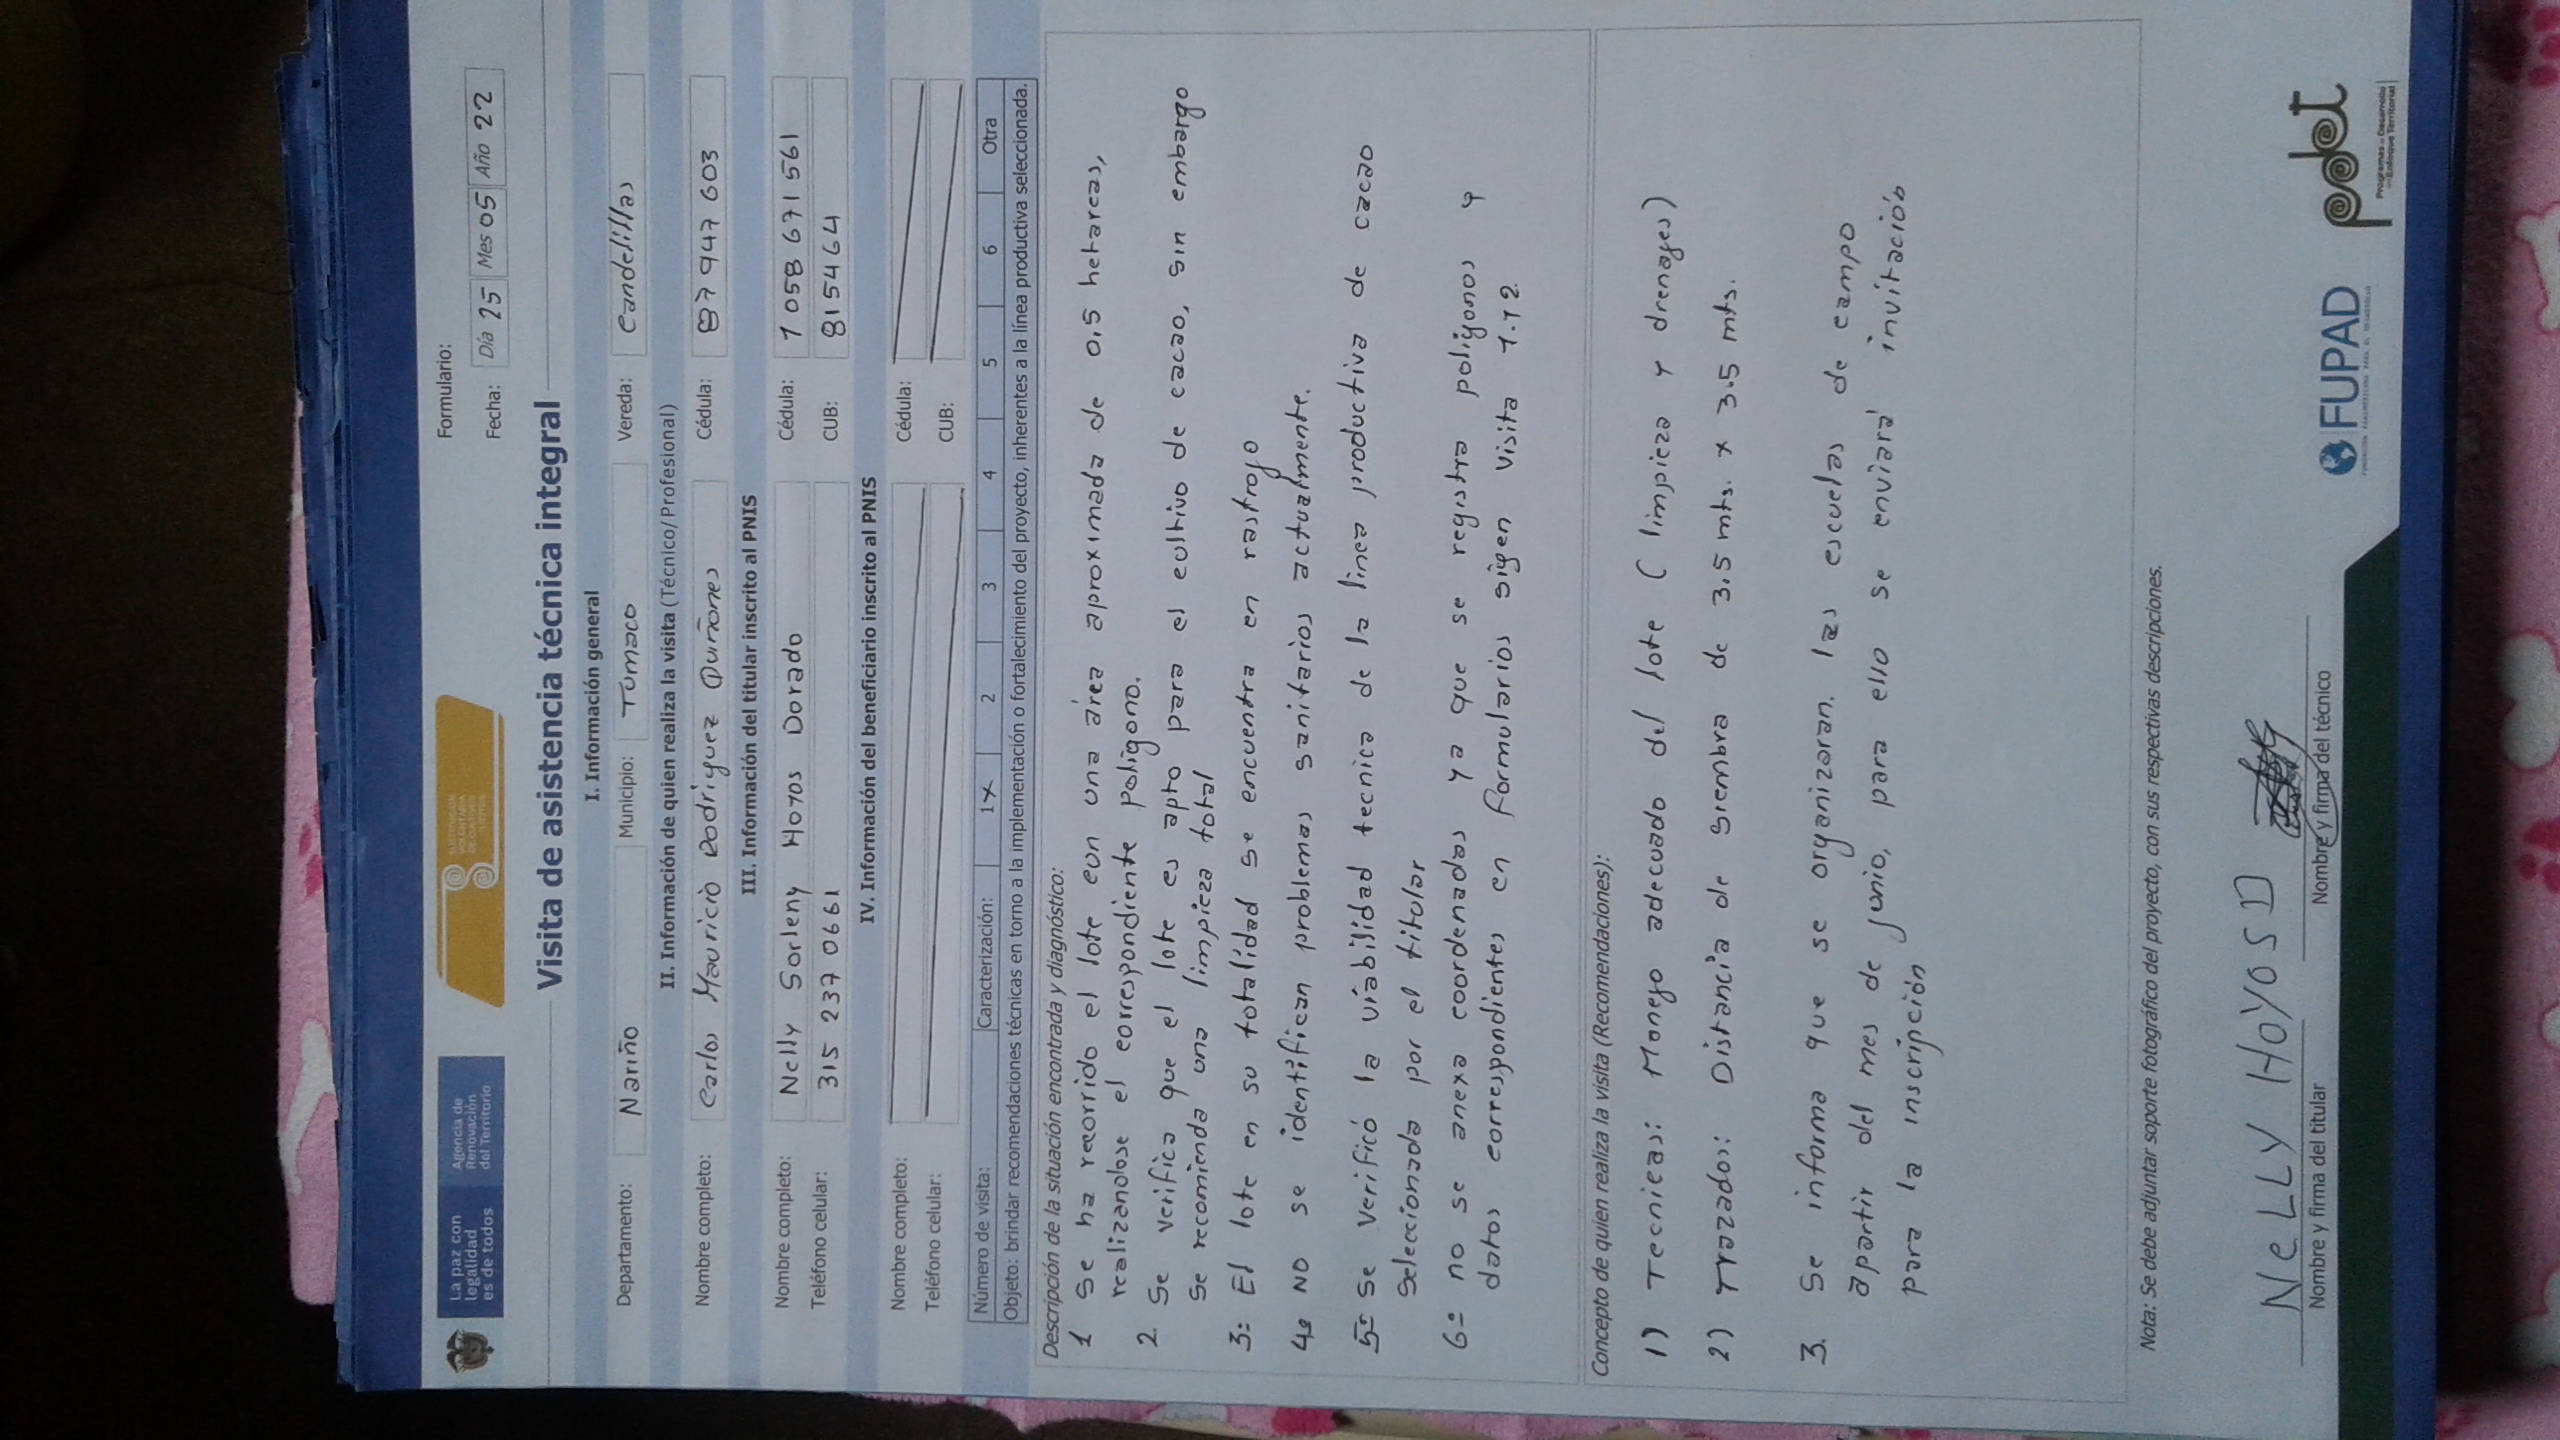 La paz con
legalidad
es de todos
Agencia de
Renovación
del Territorio
SUSTITUCIÓN
VOLUNTARIA
DE CULTIVOS
ILÍCITOS
Formulario:
Fecha: Día 25 Mes 05 Año 22
Visita de asistencia técnica integral
I. Información general
Departamento: Nariño Municipio: Tumaco Vereda: Candelillas
II. Información de quien realiza la visita (Técnico/Profesional)
Nombre completo: Carlos Mauricio Rodriguez Quiñones Cédula: 87947603
III. Información del titular inscrito al PNIS
Nombre completo: Nelly Sorleny Hoyos Dorado Cédula: 1058671561
Teléfono celular: 315 237 0661 CUB: 815464
IV. Información del beneficiario inscrito al PNIS
Nombre completo: Cédula:
Teléfono celular: CUB:
Número de visita: Caracterización: 1 X 2 3 4 5 6 Otra
Objeto: brindar recomendaciones técnicas en torno a la implementación o fortalecimiento del proyecto, inherentes a la línea productiva seleccionada.
Descripción de la situación encontrada y diagnóstico:
1 Se ha recorrido el lote con una área aproximada de 0,5 hetareas,
realizandose el correspondiente poligono.
2 Se verifica que el lote es apto para el cultivo de cacao, sin embargo
se recomienda una limpieza total
3= El lote en su totalidad se encuentra en rastrojo
4= NO se identifican problemas sanitarios actualmente.
5= Se verificó la viabilidad tecnica de la linea productiva de cacao
seleccionada por el titular
6= no se anexa coordenadas ya que se registra poligonos y
datos correspondientes en formularios sigen visita 1.12
Concepto de quien realiza la visita (Recomendaciones):
1) Tecnicas: Manejo adecuado del lote ( limpieza y drenages)
2) Trazados: Distancia de siembra de 3.5 mts. x 3.5 mts.
3. Se informa que se organizaran las escuelas de campo
apartir del mes de junio, para ello se enviará invitación
para la inscripción
Nota: Se debe adjuntar soporte fotográfico del proyecto, con sus respectivas descripciones.
NeLLY HOYOS D
Nombre y firma del titular Nombre y firma del técnico
FUPAD
pdet
Programas de Desarrollo
con Enfoque Territorial